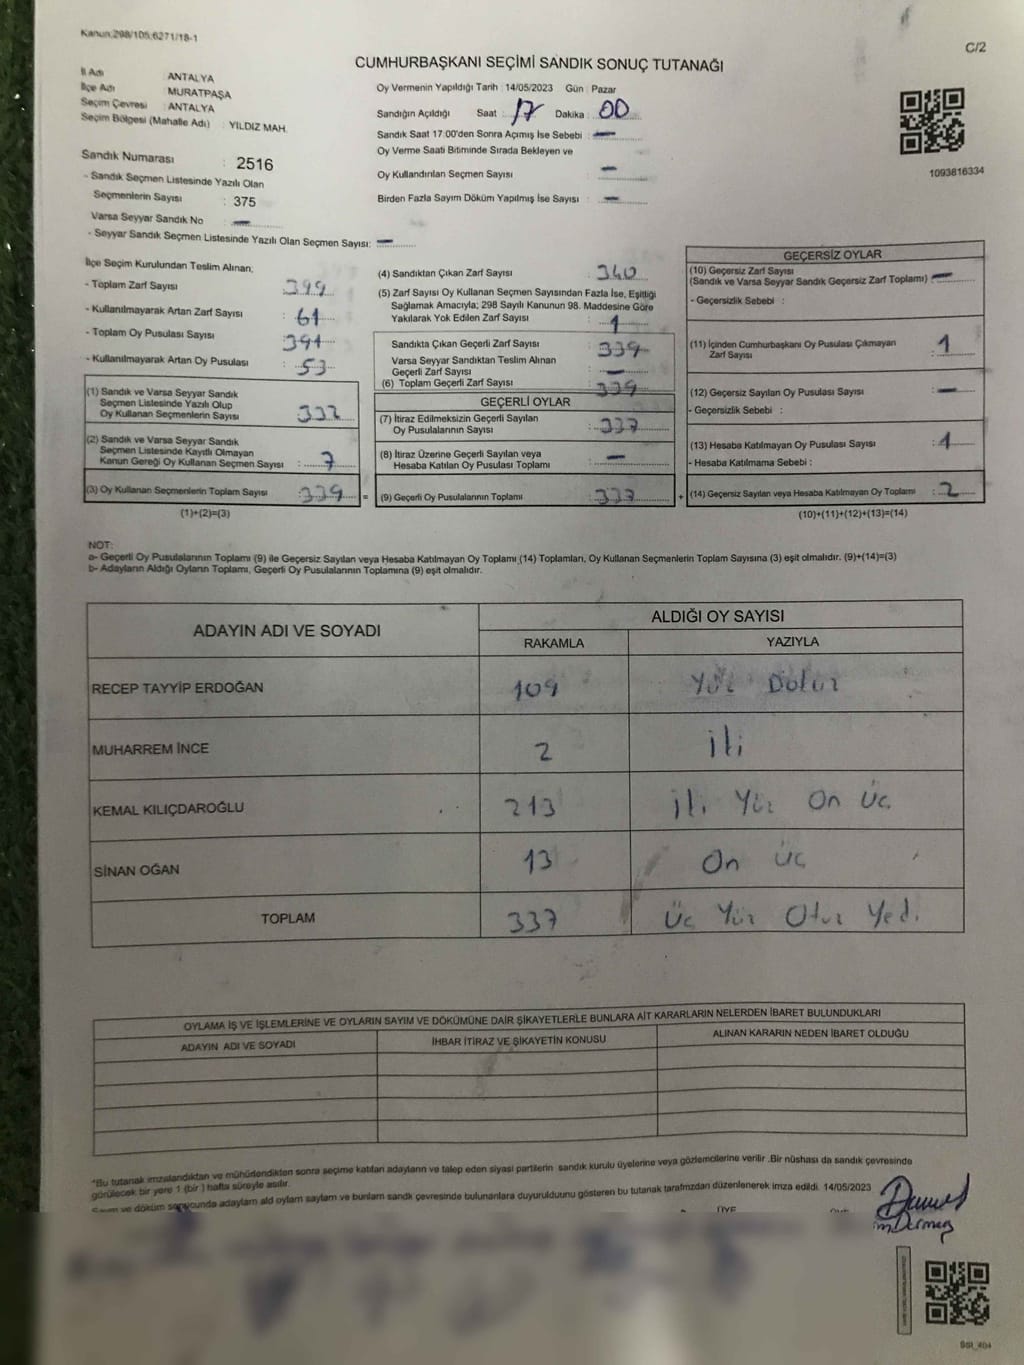 Kanun:298/105,6271/18-1
C/2
CUMHURBAŞKANI SEÇİMİ SANDIK SONUÇ TUTANAĞI
İl Adı : ANTALYA
İlçe Adı : MURATPAŞA
Seçim Çevresi : ANTALYA
Seçim Bölgesi (Mahalle Adı) : YILDIZ MAH.
Sandık Numarası : 2516
- Sandık Seçmen Listesinde Yazılı Olan
Seçmenlerin Sayısı : 375
Varsa Seyyar Sandık No : —
- Seyyar Sandık Seçmen Listesinde Yazılı Olan Seçmen Sayısı: —
Oy Vermenin Yapıldığı Tarih : 14/05/2023 Gün : Pazar
Sandığın Açıldığı Saat : 17 Dakika : 00
Sandık Saat 17:00'den Sonra Açımış İse Sebebi : —
Oy Verme Saati Bitiminde Sırada Bekleyen ve
Oy Kullandırılan Seçmen Sayısı : —
Birden Fazla Sayım Döküm Yapılmış İse Sayısı : —
1093816334
İlçe Seçim Kurulundan Teslim Alınan;
- Toplam Zarf Sayısı : 399
- Kullanılmayarak Artan Zarf Sayısı : 61
- Toplam Oy Pusulası Sayısı : 391
- Kullanılmayarak Artan Oy Pusulası : 53
(1) Sandık ve Varsa Seyyar Sandık
Seçmen Listesinde Yazılı Olup
Oy Kullanan Seçmenlerin Sayısı : 332
(2) Sandık ve Varsa Seyyar Sandık
Seçmen Listesinde Kayıtlı Olmayan
Kanun Gereği Oy Kullanan Seçmen Sayısı : 7
(3) Oy Kullanan Seçmenlerin Toplam Sayısı : 339 =
(1)+(2)=(3)
(4) Sandıktan Çıkan Zarf Sayısı : 340
(5) Zarf Sayısı Oy Kullanan Seçmen Sayısından Fazla İse, Eşitliği
Sağlamak Amacıyla; 298 Sayılı Kanunun 98. Maddesine Göre
Yakılarak Yok Edilen Zarf Sayısı : 1
Sandıkta Çıkan Geçerli Zarf Sayısı : 339
Varsa Seyyar Sandıktan Teslim Alınan
Geçerli Zarf Sayısı : —
(6) Toplam Geçerli Zarf Sayısı : 339
GEÇERLİ OYLAR
(7) İtiraz Edilmeksizin Geçerli Sayılan
Oy Pusulalarının Sayısı : 337
(8) İtiraz Üzerine Geçerli Sayılan veya
Hesaba Katılan Oy Pusulası Toplamı : —
(9) Geçerli Oy Pusulalarının Toplamı : 337 +
GEÇERSİZ OYLAR
(10) Geçersiz Zarf Sayısı
(Sandık ve Varsa Seyyar Sandık Geçersiz Zarf Toplamı) : —
- Geçersizlik Sebebi :
(11) İçinden Cumhurbaşkanı Oy Pusulası Çıkmayan
Zarf Sayısı : 1
(12) Geçersiz Sayılan Oy Pusulası Sayısı : —
- Geçersizlik Sebebi :
(13) Hesaba Katılmayan Oy Pusulası Sayısı : 1
- Hesaba Katılmama Sebebi :
(14) Geçersiz Sayılan veya Hesaba Katılmayan Oy Toplamı : 2
(10)+(11)+(12)+(13)=(14)
NOT:
a- Geçerli Oy Pusulalarının Toplamı (9) ile Geçersiz Sayılan veya Hesaba Katılmayan Oy Toplamı (14) Toplamları, Oy Kullanan Seçmenlerin Toplam Sayısına (3) eşit olmalıdır. (9)+(14)=(3)
b- Adayların Aldığı Oyların Toplamı, Geçerli Oy Pusulalarının Toplamına (9) eşit olmalıdır.
ADAYIN ADI VE SOYADI ALDIĞI OY SAYISI
RAKAMLA YAZIYLA
RECEP TAYYİP ERDOĞAN 109 Yüz Dokuz
MUHARREM İNCE 2 İki
KEMAL KILIÇDAROĞLU 213 İki Yüz On Üç
SİNAN OĞAN 13 On Üç
TOPLAM 337 Üç Yüz Otuz Yedi
OYLAMA İŞ VE İŞLEMLERİNE VE OYLARIN SAYIM VE DÖKÜMÜNE DAİR ŞİKAYETLERLE BUNLARA AİT KARARLARIN NELERDEN İBARET BULUNDUKLARI
ADAYIN ADI VE SOYADI İHBAR İTİRAZ VE ŞİKAYETİN KONUSU ALINAN KARARIN NEDEN İBARET OLDUĞU
*Bu tutanak imzalandıktan ve mühürlendikten sonra seçime katılan adayların ve talep eden siyasi partilerin sandık kurulu üyelerine veya gözlemcilerine verilir .Bir nüshası da sandık çevresinde
görülecek bir yere 1 (bir ) hafta süreyle asılır.
Sayım ve döküm sonucunda adayların ald oyların sayıları ve bunların sandık çevresinde bulunanlara duyurulduunu gösteren bu tutanak tarafmzdan düzenlenerek imza edildi. 14/05/2023
ÜYE